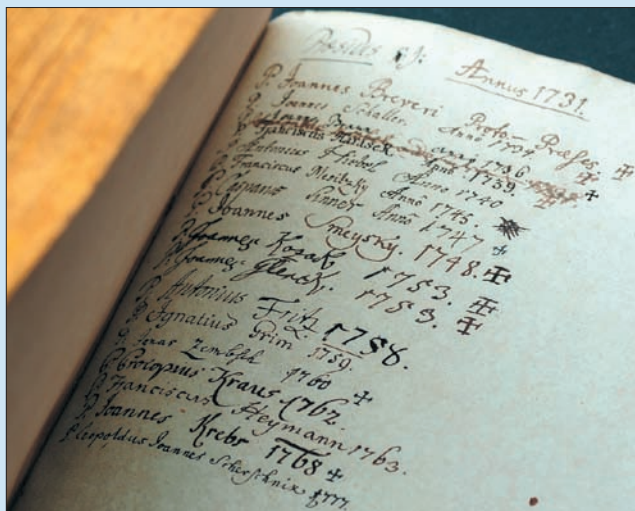 Præsides S.J: Annus 1731.
P. Joannes Breveri Proto-Præses. ✠
P. Joannes Schaller. Anno 1734. ✠
1736. ✠
P. Franciscus 1739.
P. Antonius Hiebel Anno 1740
P. Franciscus Meritzky Anno 1745.
P. Casparus Sinner Anno 1747 ✠
P. Joannes Smeysky. 1748. ✠
P. Joannes Kozak 1753. ✠
P. Joannes 1753. ✠
P. Antonius Fritz 1758.
P. Ignatius Grim 1759.
P. Jonas 1760 ✠
P. Procopius Kraus 1762.
P. Franciscus Heymann 1763.
P. Joannes Krebs 1768 ✠
P. Leopoldus Joannes Scherschnix 1777.